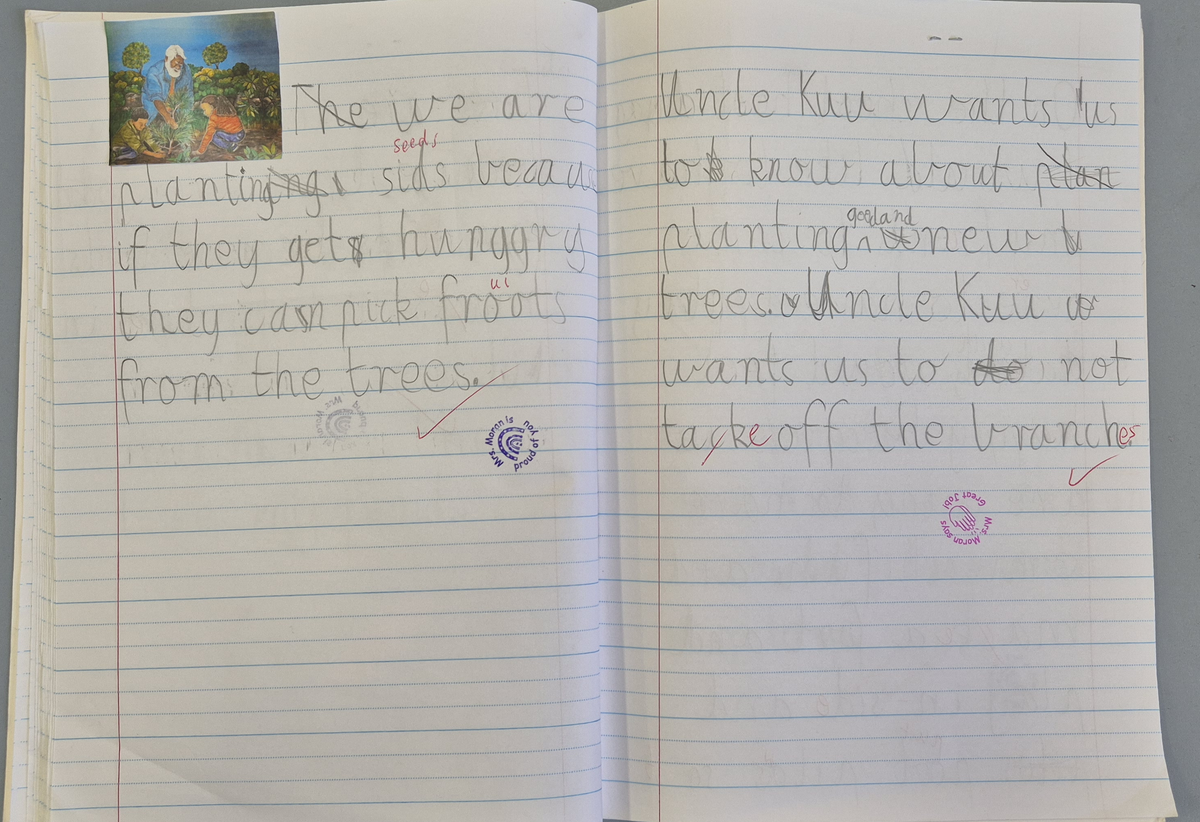 The we are
seeds
planting sids becau
if they get hunggry
ui
they can pick froots
from the trees.
Mrs. Moran is proud of you
Uncle Kuu wants us
to know about plan
good and
planting new t
trees. Uncle Kuu w
wants us to do not
tacke off the branches
Mrs. Moran says Great Job!